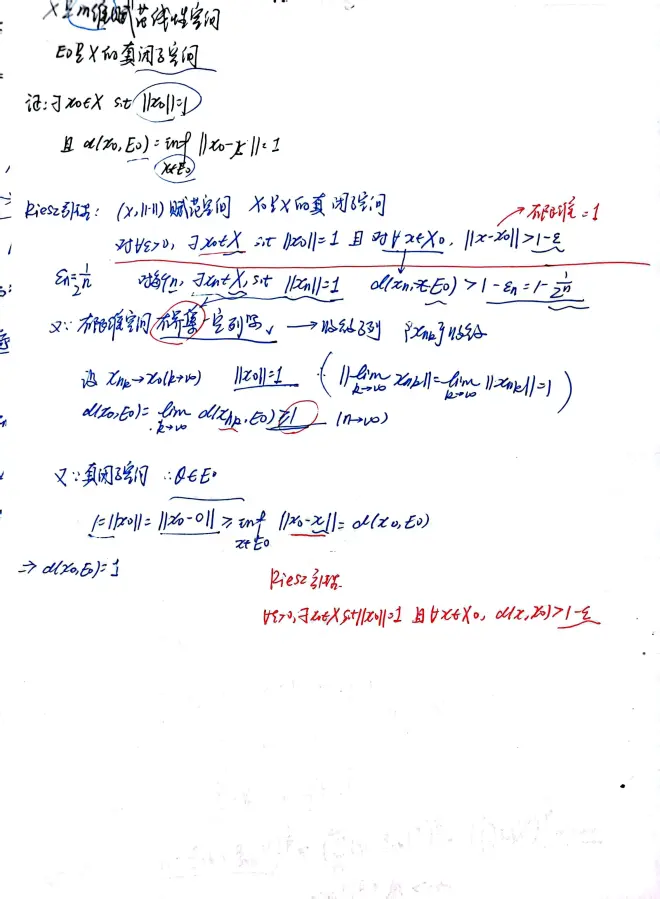 X是m维赋范线性空间
E0是X的真闭子空间
证:∃x0∈X s.t ||x0||=1
且 d(x0,E0)=inf ||x0-x||=1
x∈E0
Riesz引理: (X,||·||)赋范空间 X0是X的真闭子空间
有限维=1
对∀ε>0, ∃x0∈X s.t ||x0||=1 且 对∀x∈X0, ||x-x0||>1-ε
εn=1/2^n 对每n, ∃xn∈X, s.t ||xn||=1 d(xn,E0)>1-εn=1-1/2^n
又∵有限维空间有界集一定列紧, →收敛子列 {xnk}收敛
设 xnk→x0(k→∞) ||x0||=1 (||lim xnk||=lim ||xnk||=1)
k→∞ k→∞
d(x0,E0)=lim d(xnk,E0)≥1 (n→∞)
k→∞
又∵真闭子空间 ∴θ∈E0
1=||x0||=||x0-0||≥inf ||x0-x||=d(x0,E0)
x∈E0
⇒d(x0,E0)=1
Riesz引理.
∀ε>0,∃x0∈X s.t||x0||=1 且∀x∈X0, d(x,x0)>1-ε